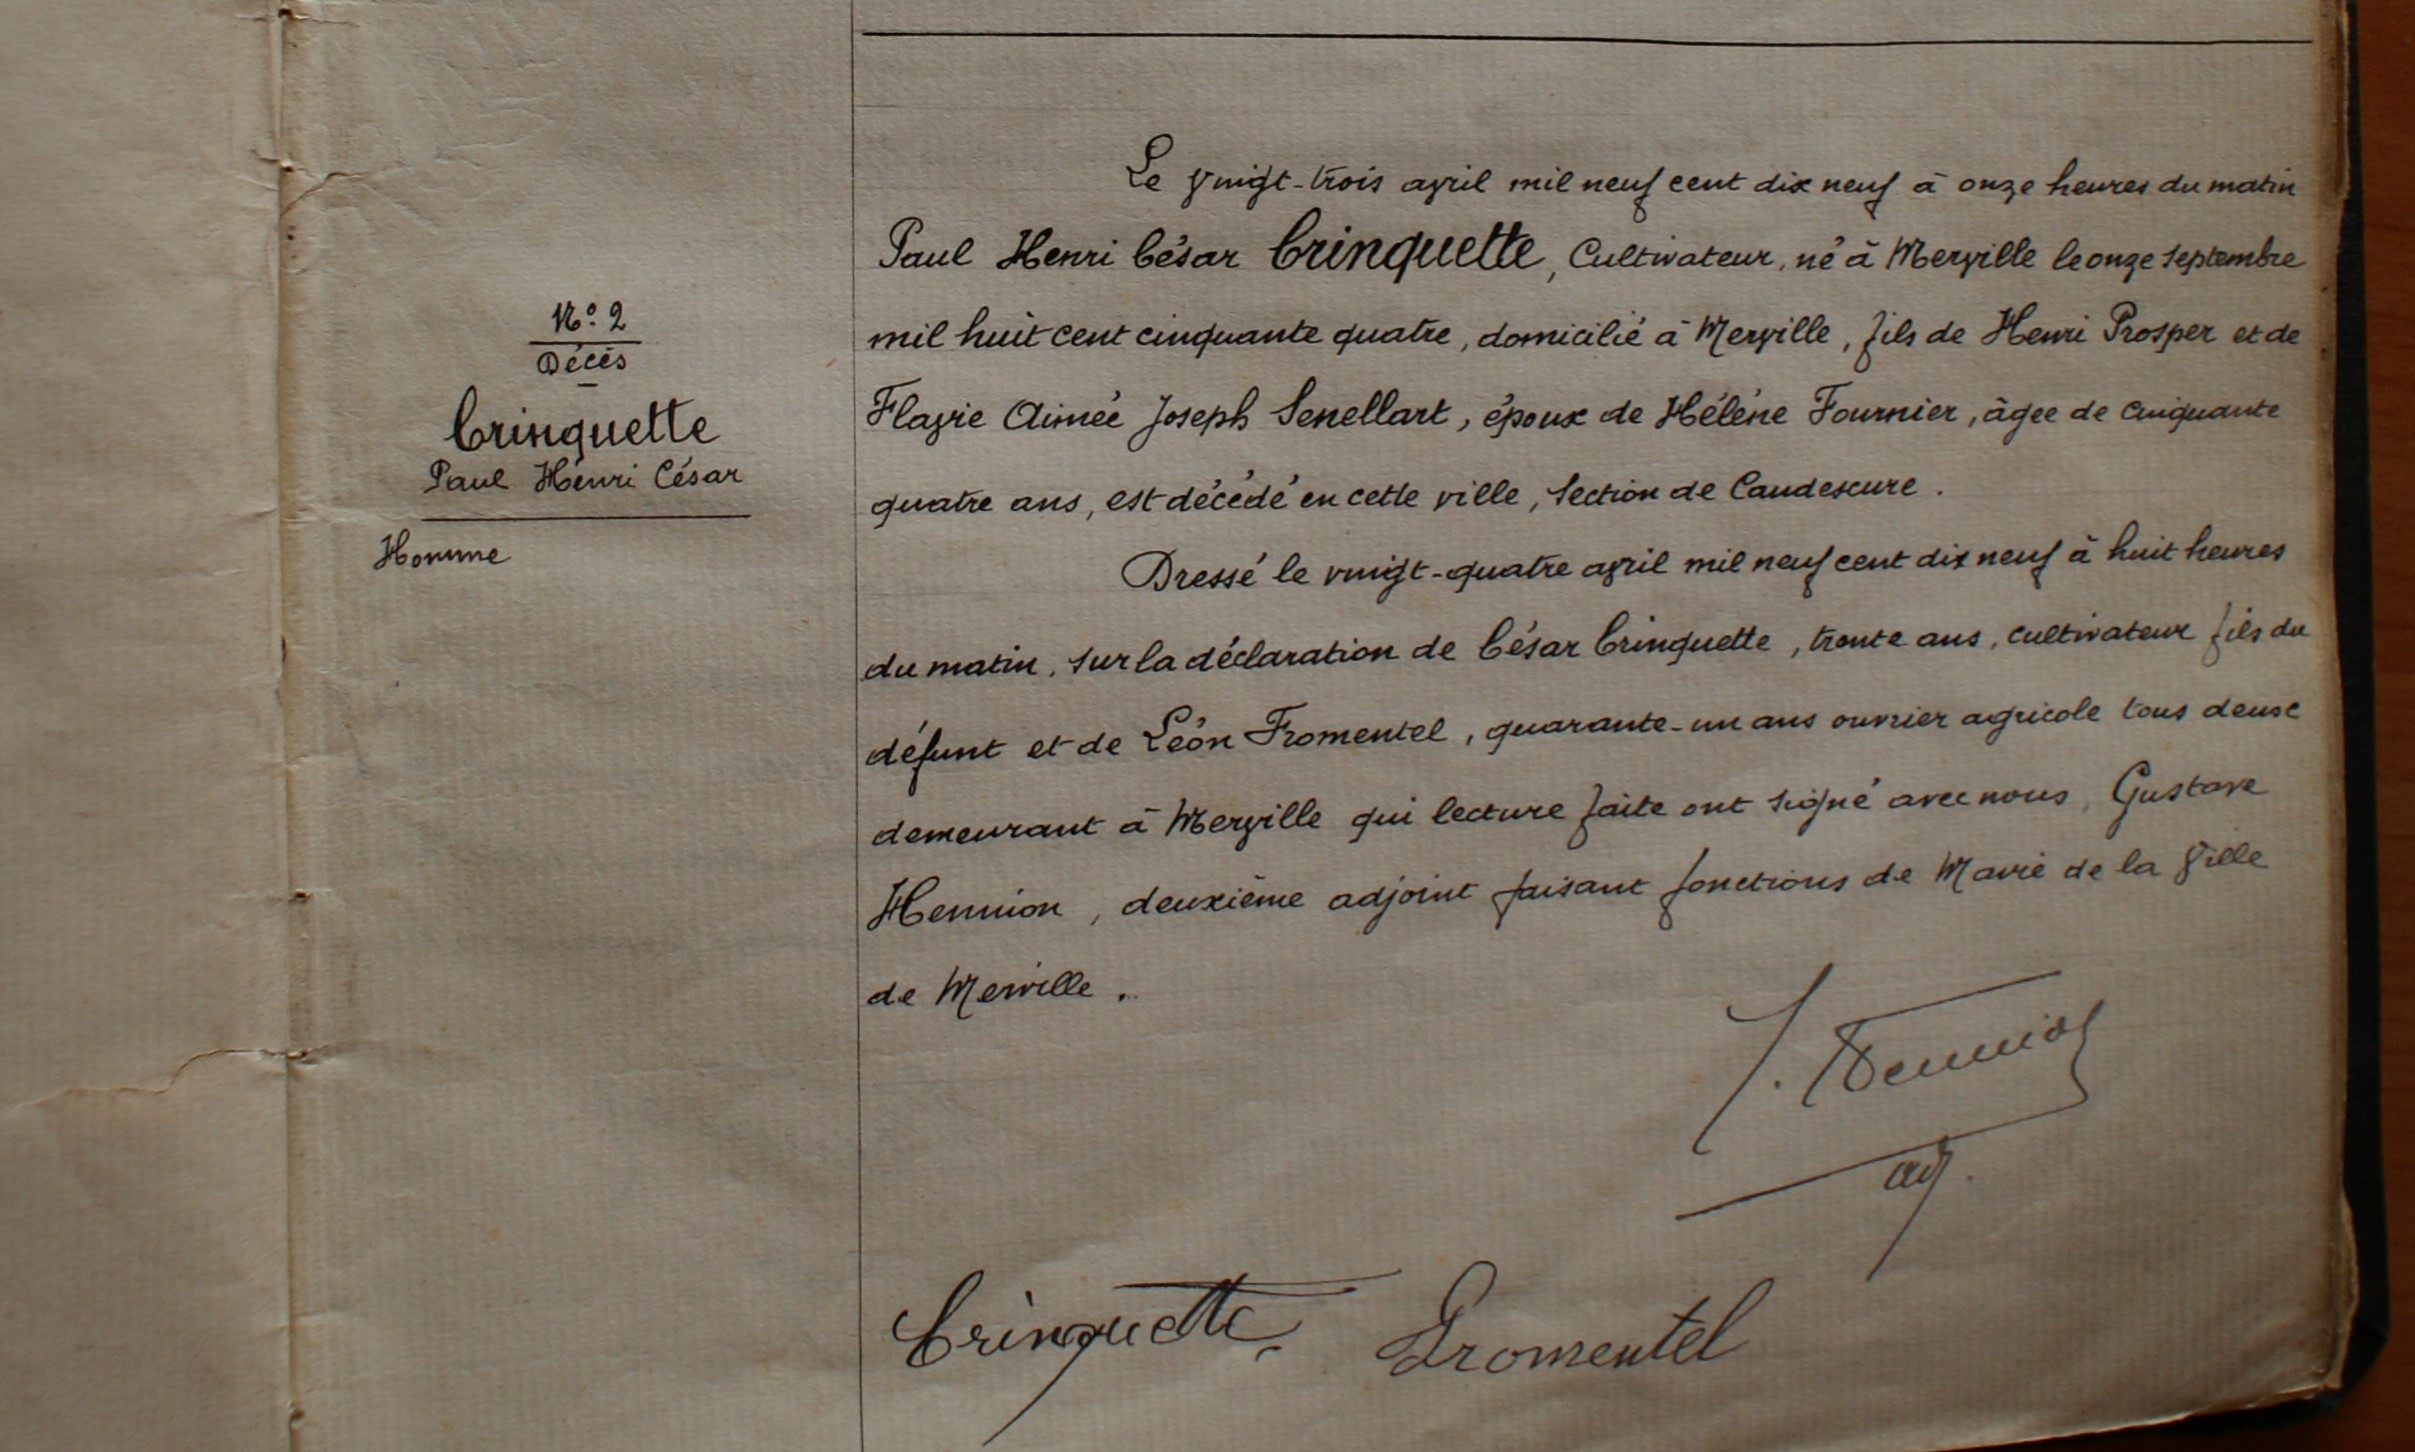 N° 2
Décès
Crinquette
Paul Henri César
Homme
Le vingt-trois avril mil neuf cent dix neuf à onze heures du matin
Paul Henri César Crinquette, Cultivateur, né à Merville le onze septembre
mil huit cent cinquante quatre, domicilié à Merville, fils de Henri Prosper et de
Flavie Aimée Joseph Senellart, époux de Hélène Fournier, âgée de cinquante
quatre ans, est décédé en cette ville, section de Caudescure.
Dressé le vingt-quatre avril mil neuf cent dix neuf à huit heures
du matin, sur la déclaration de César Crinquette, trente ans, cultivateur fils du
défunt et de Léon Fromentel, quarante-un ans ouvrier agricole tous deux
demeurant à Merville qui lecture faite ont signé avec nous, Gustave
Hennion, deuxième adjoint faisant fonctions de Maire de la Ville
de Merville.
Hennion
adj.
Crinquette Fromentel